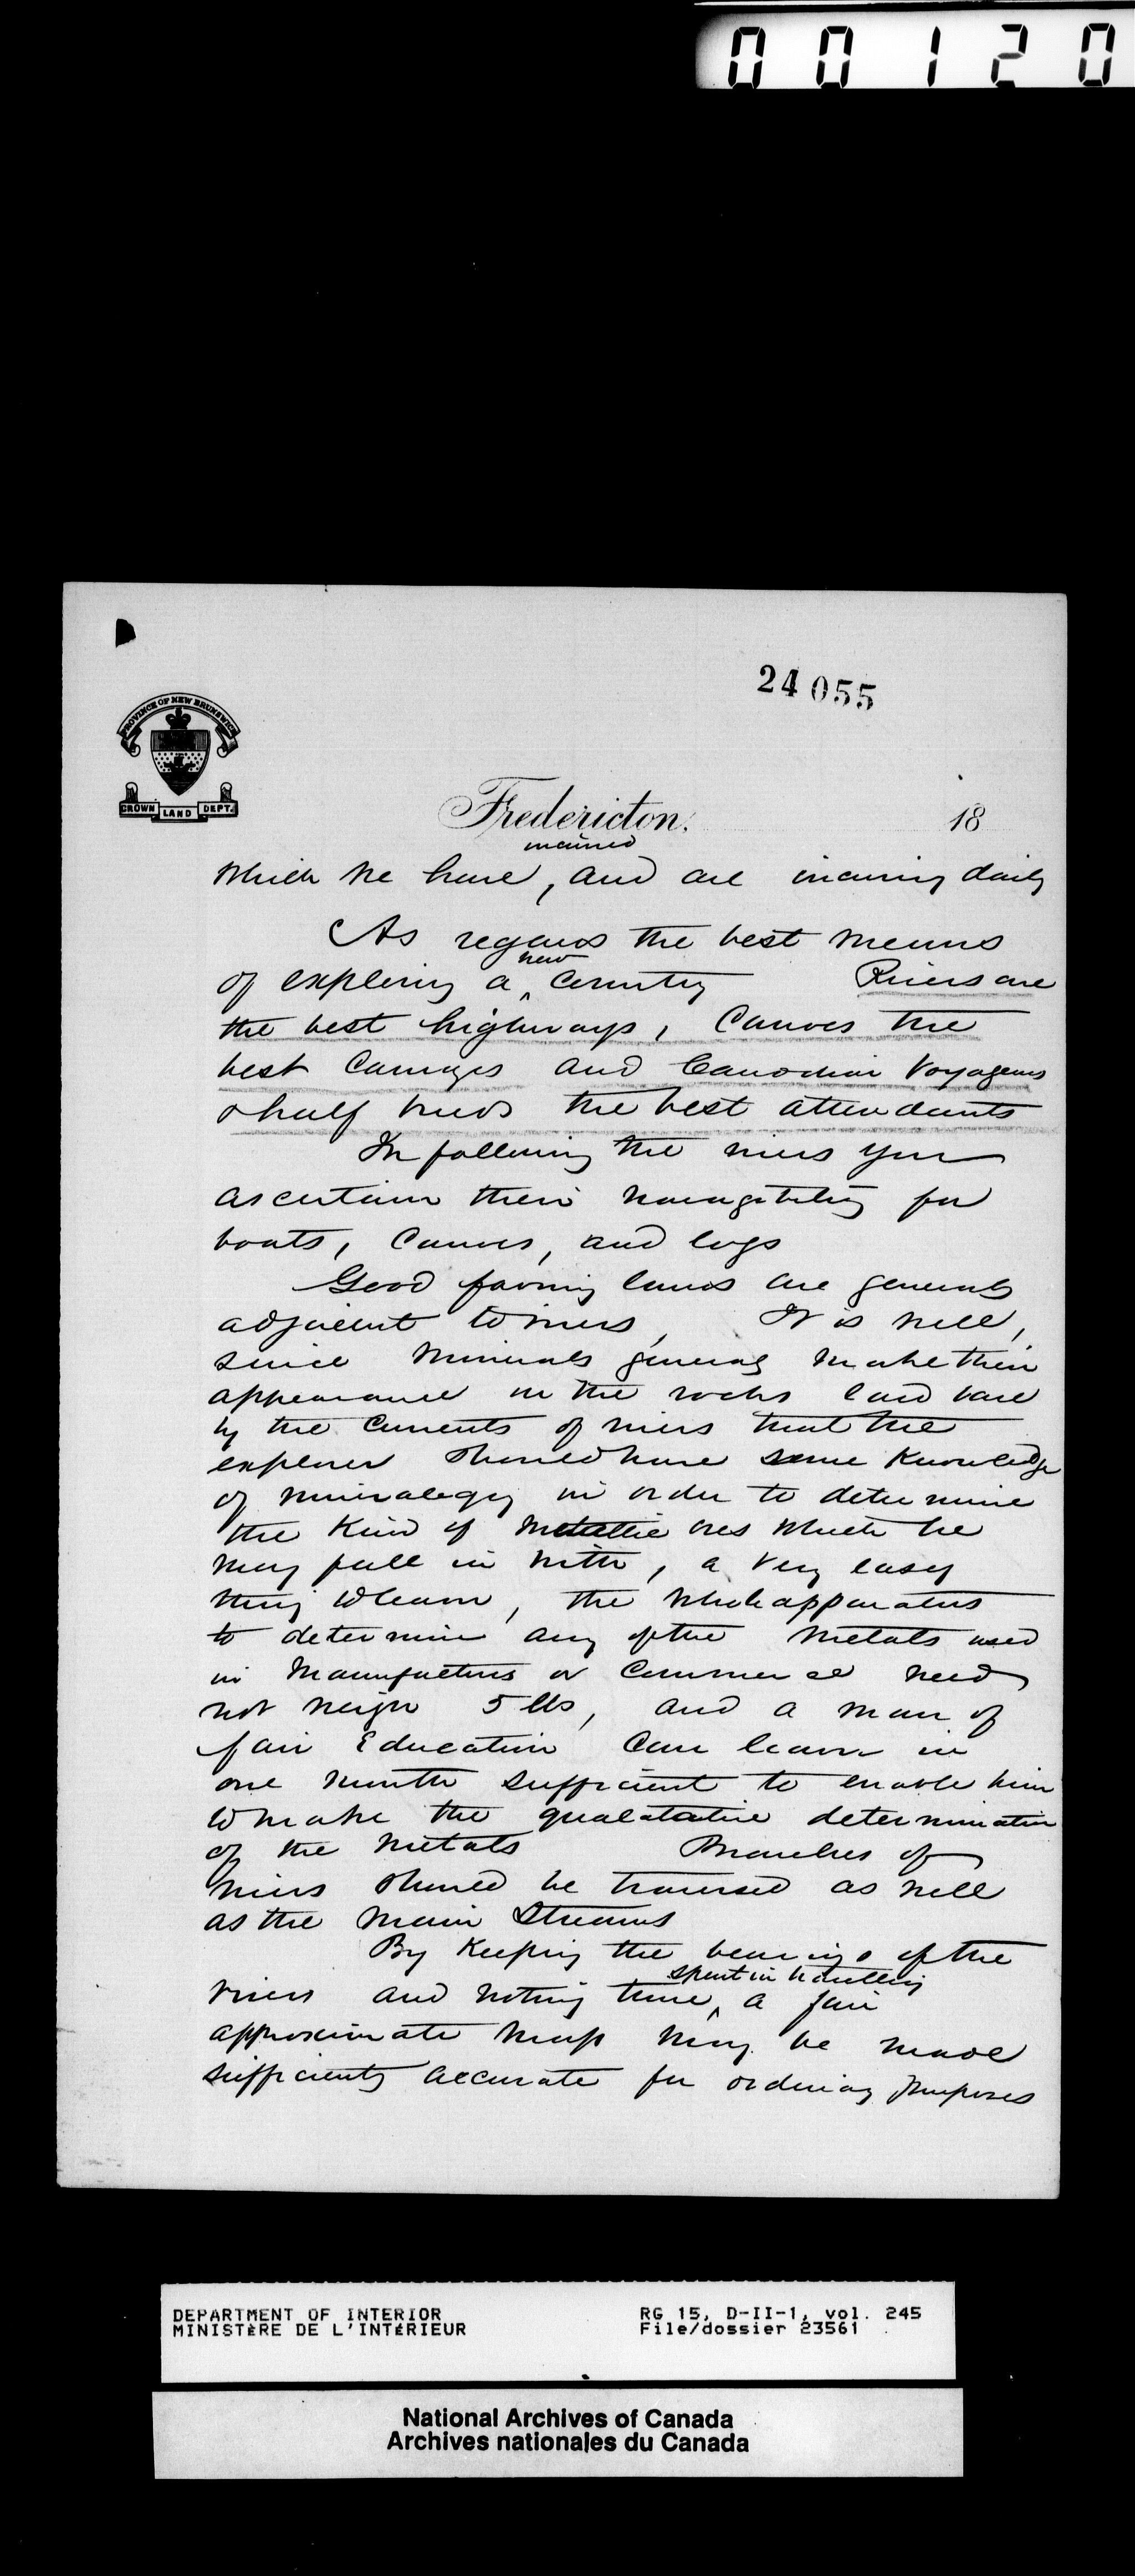 00120
24055
PROVINCE OF NEW BRUNSWICK
CROWN LAND DEPT.
Fredericton. 18
incurred
which we have, and are incurring daily
As regards the best means
new
of exploring a country Rivers are
the best highways, Canoes the
best Carriages and Canadian Voyageurs
& half breeds the best attendants
In following the rivers you
ascertain their navigability for
boats, Canoes, and logs
Good farming lands are generally
adjacent to rivers, It is well,
since Minerals generally make their
appearance in the rocks laid bare
by the Currents of rivers that the
explorer should have some Knowledge
of mineralogy in order to determine
the Kind of Metallic ores which he
may fall in with, a very easy
thing to learn, the whole apparatus
to determine any of the Metals used
in Manufactures or Commerce need
not weigh 5 lbs, and a man of
fair Education Can learn in
one month sufficient to enable him
to make the qualatative determination
of the Metals Branches of
rivers should be traversed as well
as the Main Streams
By Keeping the bearings of the
spent in travelling
rivers and noting time, a fair
approximate map may be made
sufficiently accurate for ordinary purposes
DEPARTMENT OF INTERIOR RG 15, D-II-1, vol. 245
MINISTÈRE DE L'INTÉRIEUR File/dossier 23561
National Archives of Canada
Archives nationales du Canada